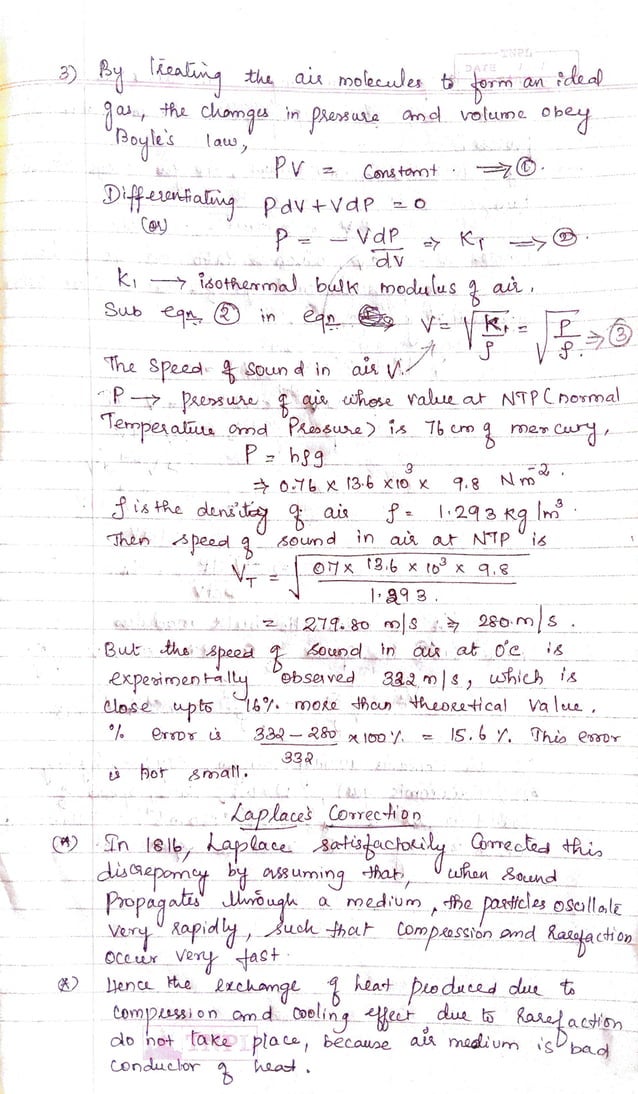 3) By treating the air molecules to form an ideal
gas, the changes in pressure and volume obey
Boyle's law,
PV = Constant. ⇒ ①.
Differentiating PdV + VdP = 0
(or)
P = - VdP/dV ⇒ K₁ → ②.
K₁ → isothermal bulk modulus of air.
Sub eqn ② in eqn V = √(K₁/ρ) = √(P/ρ) ⇒ ③
The speed of sound in air V.
P → pressure of air whose value at NTP (normal
Temperature and Pressure) is 76 cm of mercury,
P = hρg
⇒ 0.76 x 13.6 x10³ x 9.8 Nm⁻².
ρ is the density of air ρ = 1.293 kg/m³.
Then speed of sound in air at NTP is
V_T = √(07 x 13.6 x 10³ x 9.8 / 1.293.)
= 279.80 m/s ⇒ 280 m/s.
But the speed of sound in air at 0°c is
experimentally observed 332 m/s, which is
close upto 16% more than theoretical value.
% error is (332 - 280)/332 x100% = 15.6 %. This error
is not small.
Laplace's Correction
(*) In 1816, Laplace satisfactorily corrected this
discrepancy by assuming that, when sound
propagates through a medium, the particles oscillate
very rapidly, such that compression and Rarefaction
occur very fast.
(*) Hence the exchange of heat produced due to
compression and cooling effect due to Rarefaction
do not take place, because air medium is bad
conductor of heat.